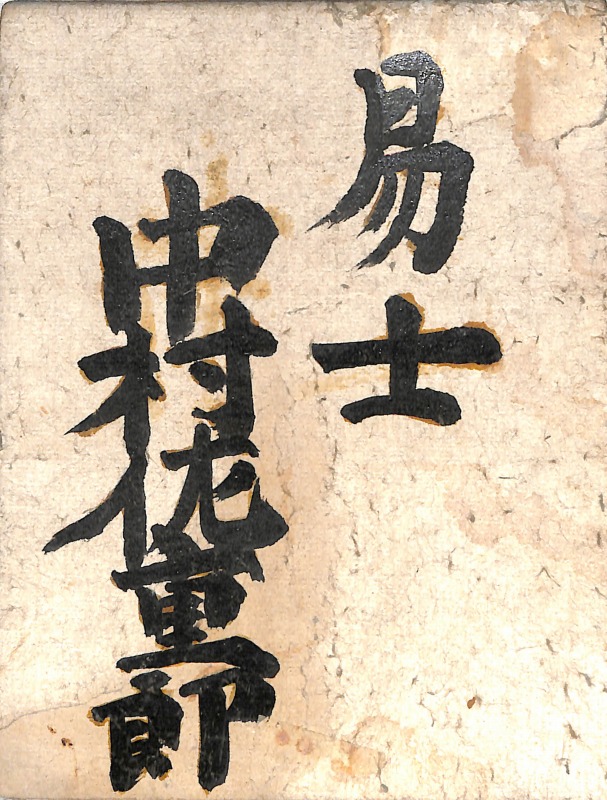 易士
中村佐重郎